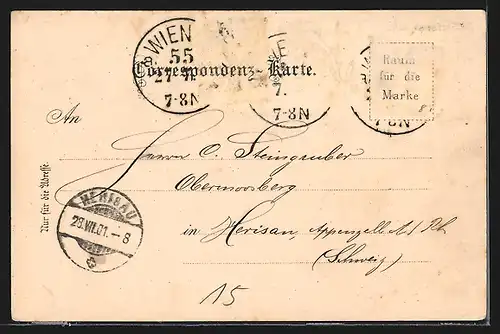 WIEN
55
7-8N
7.
7-8N
Correspondenz-Karte.
Raum
für die
Marke
An
Herrn O. Steingruber
Obermoosberg
in Herisau, Appenzell A. Rh
(Schweiz)
Nur für die Adresse.
HERISAU
28.VII.01.-8
15